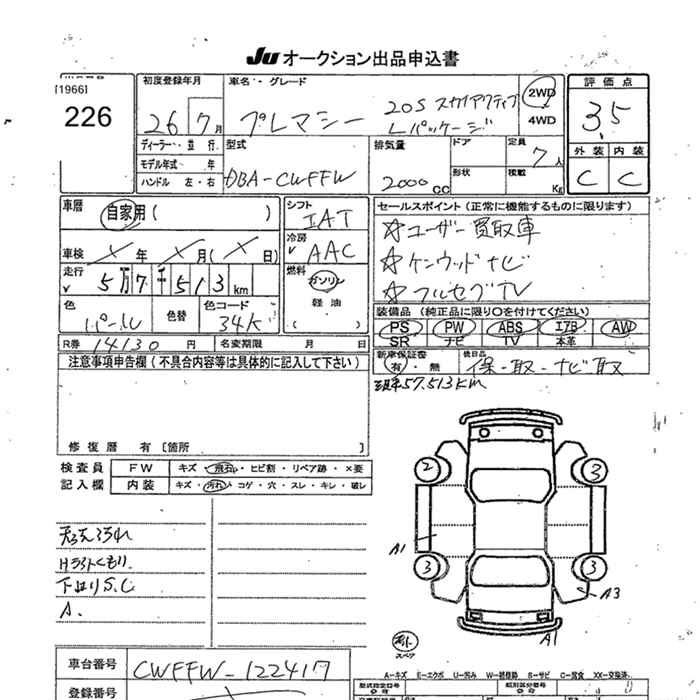 JU オークション出品申込書
[1966]
226
初度登録年月
26 7月
車名・グレード
プレマシー
20S スカイアクティブ
Lパッケージ
2WD
4WD
評価点
3.5
外装 内装
C C
ディーラー・並行
モデル年式・年
ハンドル 左・右
型式
DBA-CWFFW
排気量
2000cc
ドア
形状
定員
7人
積載
Kg
車歴
自家用( )
車検 × 年 × 月(× 日)
走行
5万7千513km
色
パール
色替
色コード
34K
R券 14130 円
名変期限 月 日
シフト
IAT
冷房
AAC
燃料
ガソリン
軽油
( )
セールスポイント(正常に機能するものに限ります)
☆ユーザー買取車
☆ケンウッドナビ
☆フルセグTV
装備品(純正品に限り○を付けてください)
PS PW ABS エアB AW
SR ナビ TV 本革
新車保証書
有・無
後日品
保・取・ナビ取
現車57.513km
注意事項申告欄(不具合内容等は具体的に記入して下さい)
修復歴 有〔箇所 〕
検査員
記入欄
FW キズ・飛石・ヒビ割・リペア跡・×要
内装 キズ・汚れ・コゲ・穴・スレ・キレ・破レ
Hライトくもり
下回りS.C
A.
2 3
A1
3 3
A3
A1
スペア
車台番号 CWFFW-122417
登録番号
A=キズ E=エクボ U=凹み W=補修跡 S=サビ C=腐食 XX=交換済
型式指定番号
類別区分番号